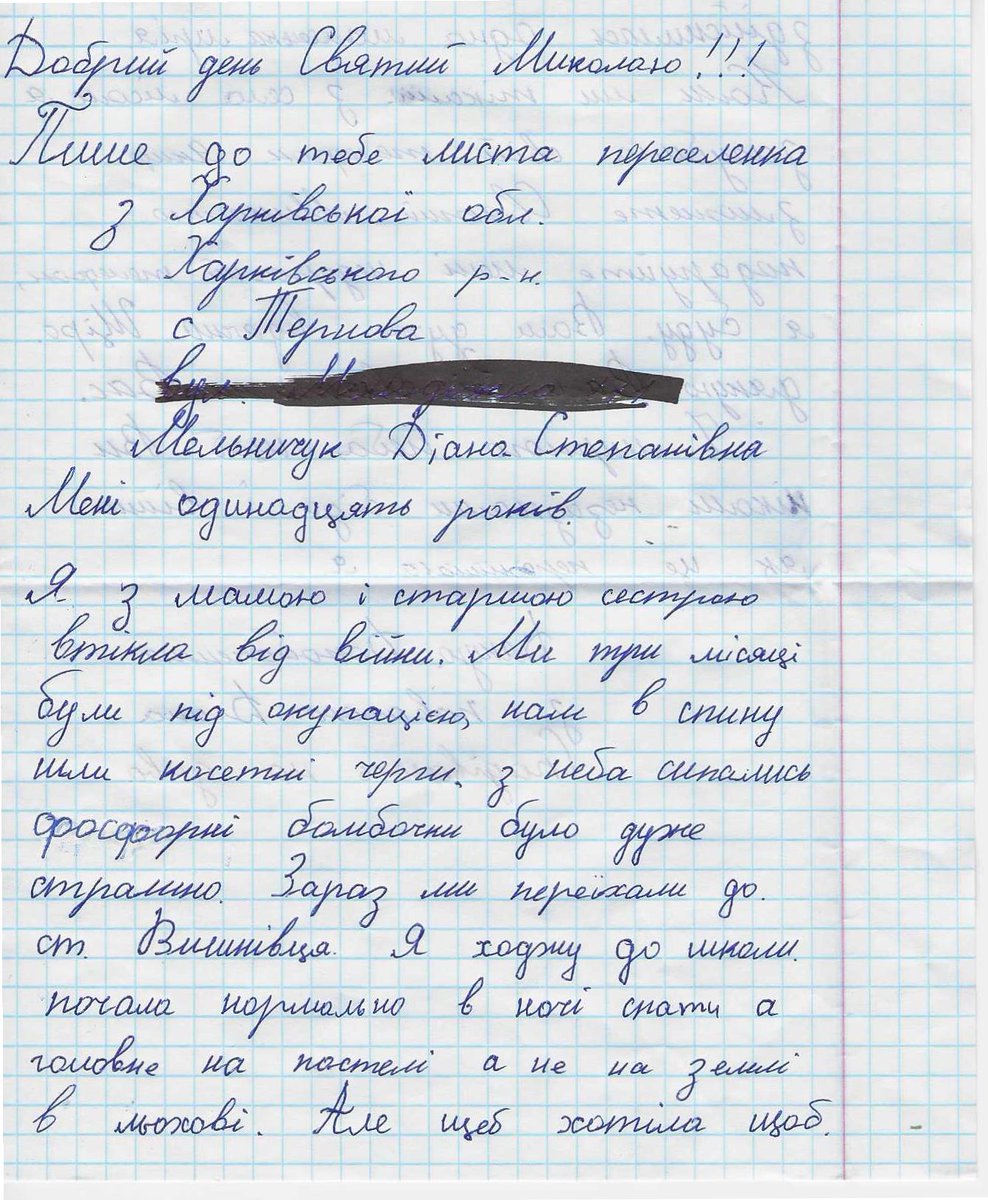 Добрий день Святий Миколаю!!!
Пише до тебе листа переселенка
з Харківської обл.
Харківського р-н.
с Тернова
Мельничук Діана Степанівна
Мені одинадцять років.
Я з мамою і старшою сестрою
втікла від війни. Ми три місяці
були під окупацією, нам в спину
шли касетні черги, з неба сипались
фосфорні бомбочки було дуже
страшно. Зараз ми переїхали до.
ст. Вишнівця. Я ходжу до школи.
почала нормально в ночі спати а
головне на постелі а не на землі
в льохові. Але щеб хотіла щоб.